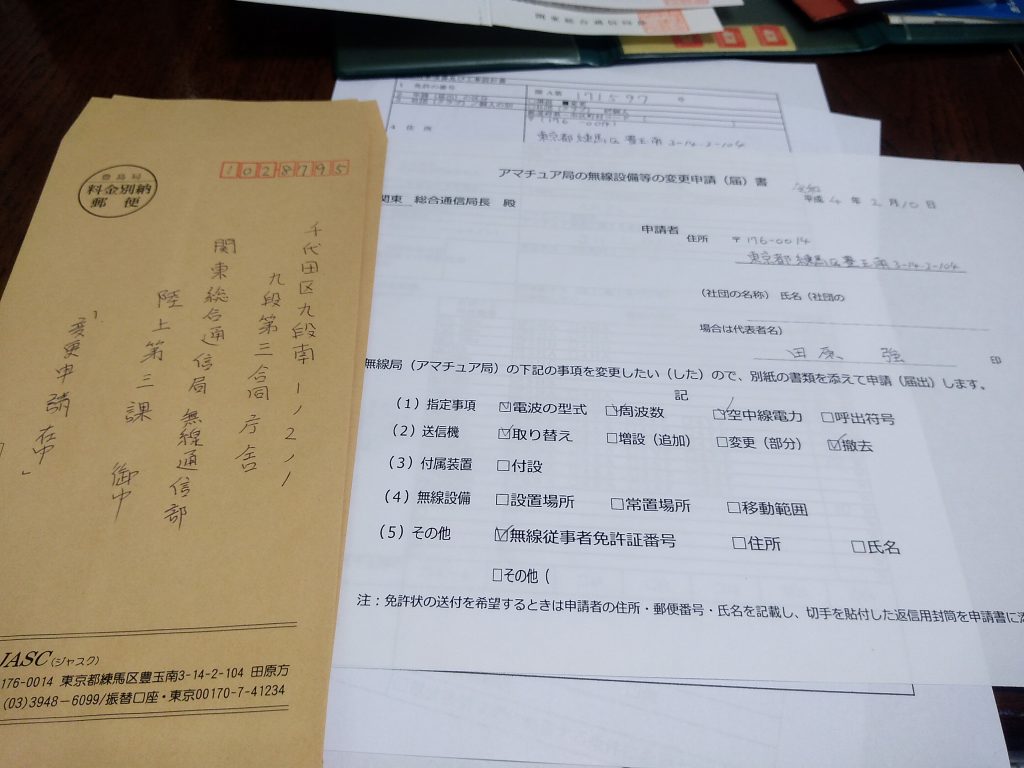 関東総合通信局
1 免許の番号
関A第 171597 号
4 住所
東京都練馬区豊玉南3-14-2-104
豊島局
料金別納
郵便
1028795
千代田区九段南1ノ2ノ1
九段第三合同庁舎
関東総合通信局無線通信部
陸上第三課 御中
変更申請在中
JASC(ジャスク)
176-0014 東京都練馬区豊玉南3-14-2-104 田原方
(03)3948-6099/振替口座・東京00170-7-41234
アマチュア局の無線設備等の変更申請(届)書
令和
平成 4 年 2 月 10 日
関東 総合通信局長 殿
申請者
住所 〒176-0014
東京都練馬区豊玉南3-14-2-104
(社団の名称) 氏名(社団の
場合は代表者名)
田原 強 印
無線局(アマチュア局)の下記の事項を変更したい(した)ので、別紙の書類を添えて申請(届出)します。
記
(1)指定事項 ☑電波の型式 □周波数 ☑空中線電力 □呼出符号
(2)送信機 ☑取り替え □増設(追加) □変更(部分) ☑撤去
(3)付属装置 □付設
(4)無線設備 □設置場所 □常置場所 □移動範囲
(5)その他 ☑無線従事者免許証番号 □住所 □氏名
□その他(
注:免許状の送付を希望するときは申請者の住所・郵便番号・氏名を記載し、切手を貼付した返信用封筒を申請書に